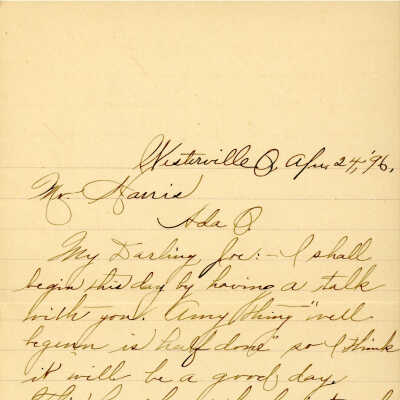 Westerville O. Apr. 24, '96.
Mr. Harris
Ada O.
My Darling Joe:- I shall
begin this day by having a talk
with you. Any thing "well
begun is half done" so I think
it will be a good day.